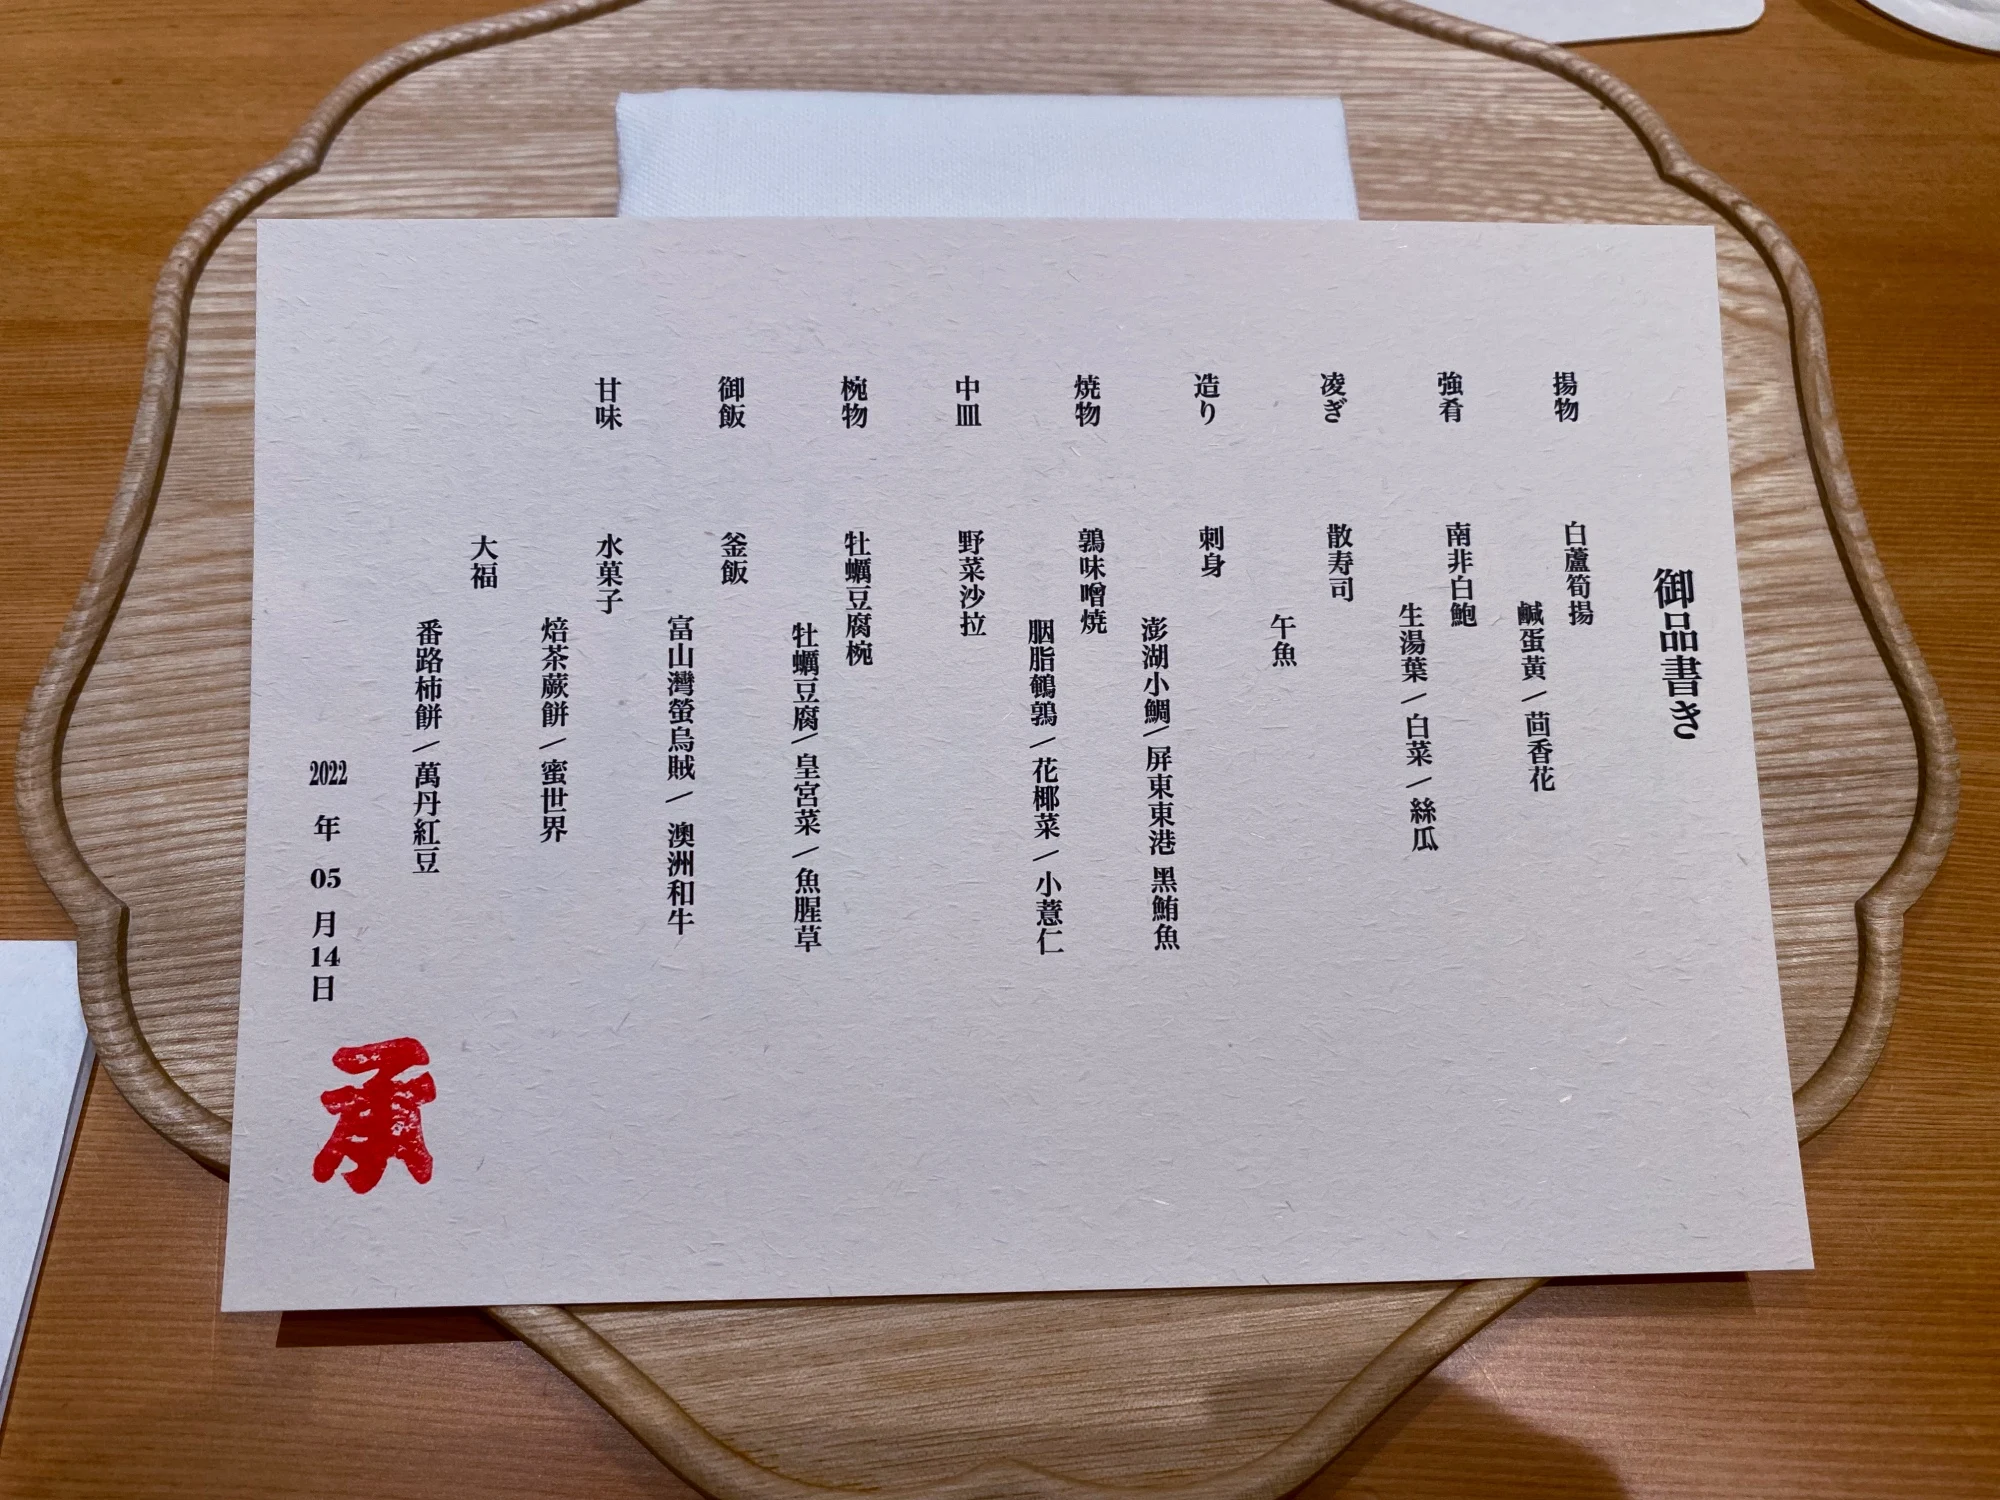 御品書き
揚物 白蘆筍揚
鹹蛋黃 / 茴香花
強肴 南非白鮑
生湯葉 / 白菜 / 絲瓜
凌ぎ 散寿司
午魚
造り 刺身
澎湖小鯛 / 屏東東港 黑鮪魚
焼物 鶉味噌焼
胭脂鵪鶉 / 花椰菜 / 小薏仁
中皿 野菜沙拉
椀物 牡蠣豆腐椀
牡蠣豆腐 / 皇宮菜 / 魚腥草
御飯 釜飯
富山灣螢烏賊 / 澳洲和牛
甘味 水菓子
焙茶蕨餅 / 蜜世界
大福
番路柿餅 / 萬丹紅豆
2022 年 05 月 14 日
承